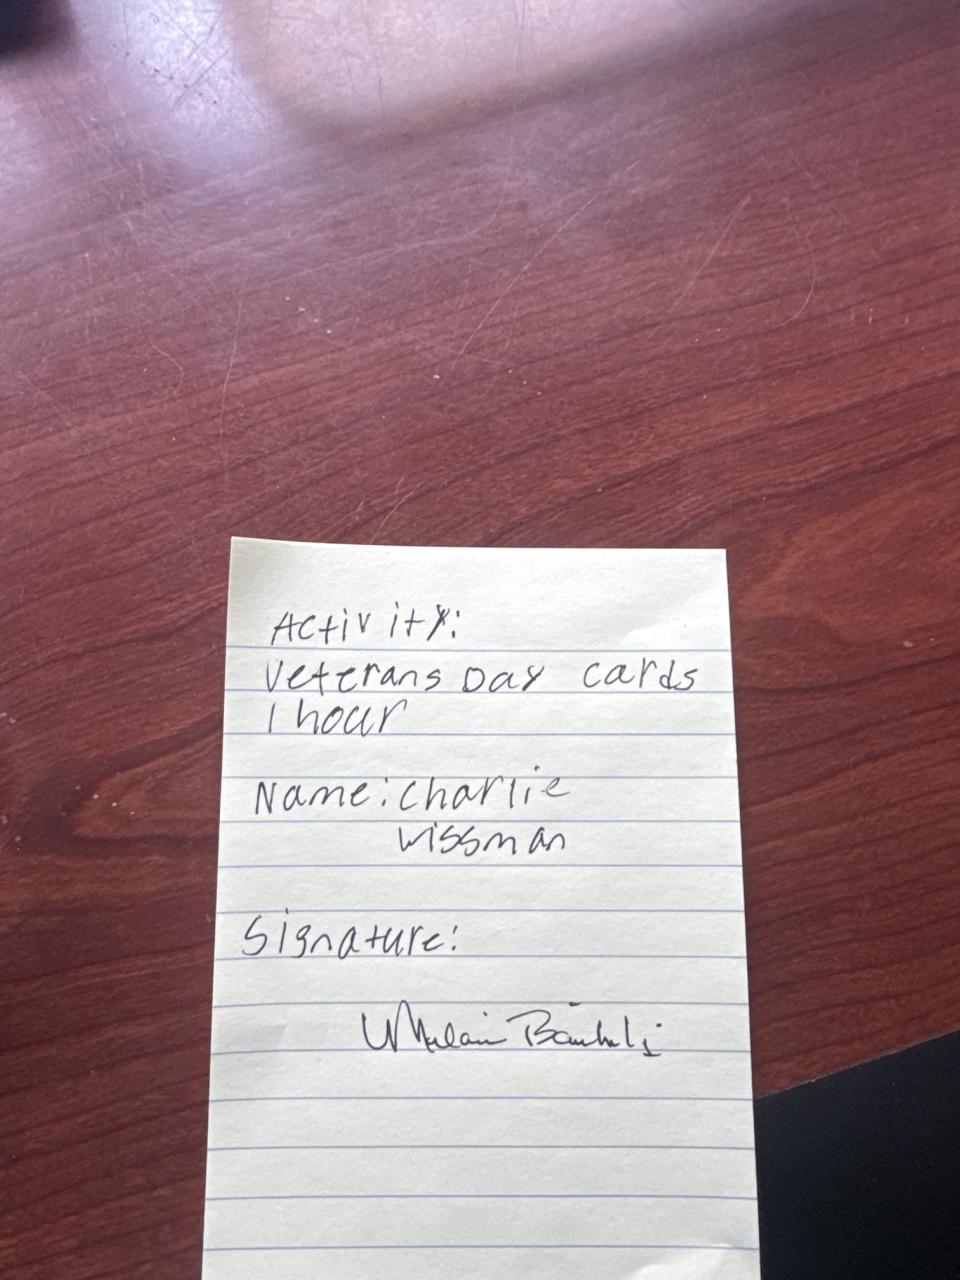 Activity:
Veterans Day cards
1 hour
Name: Charlie
Wissman
Signature: